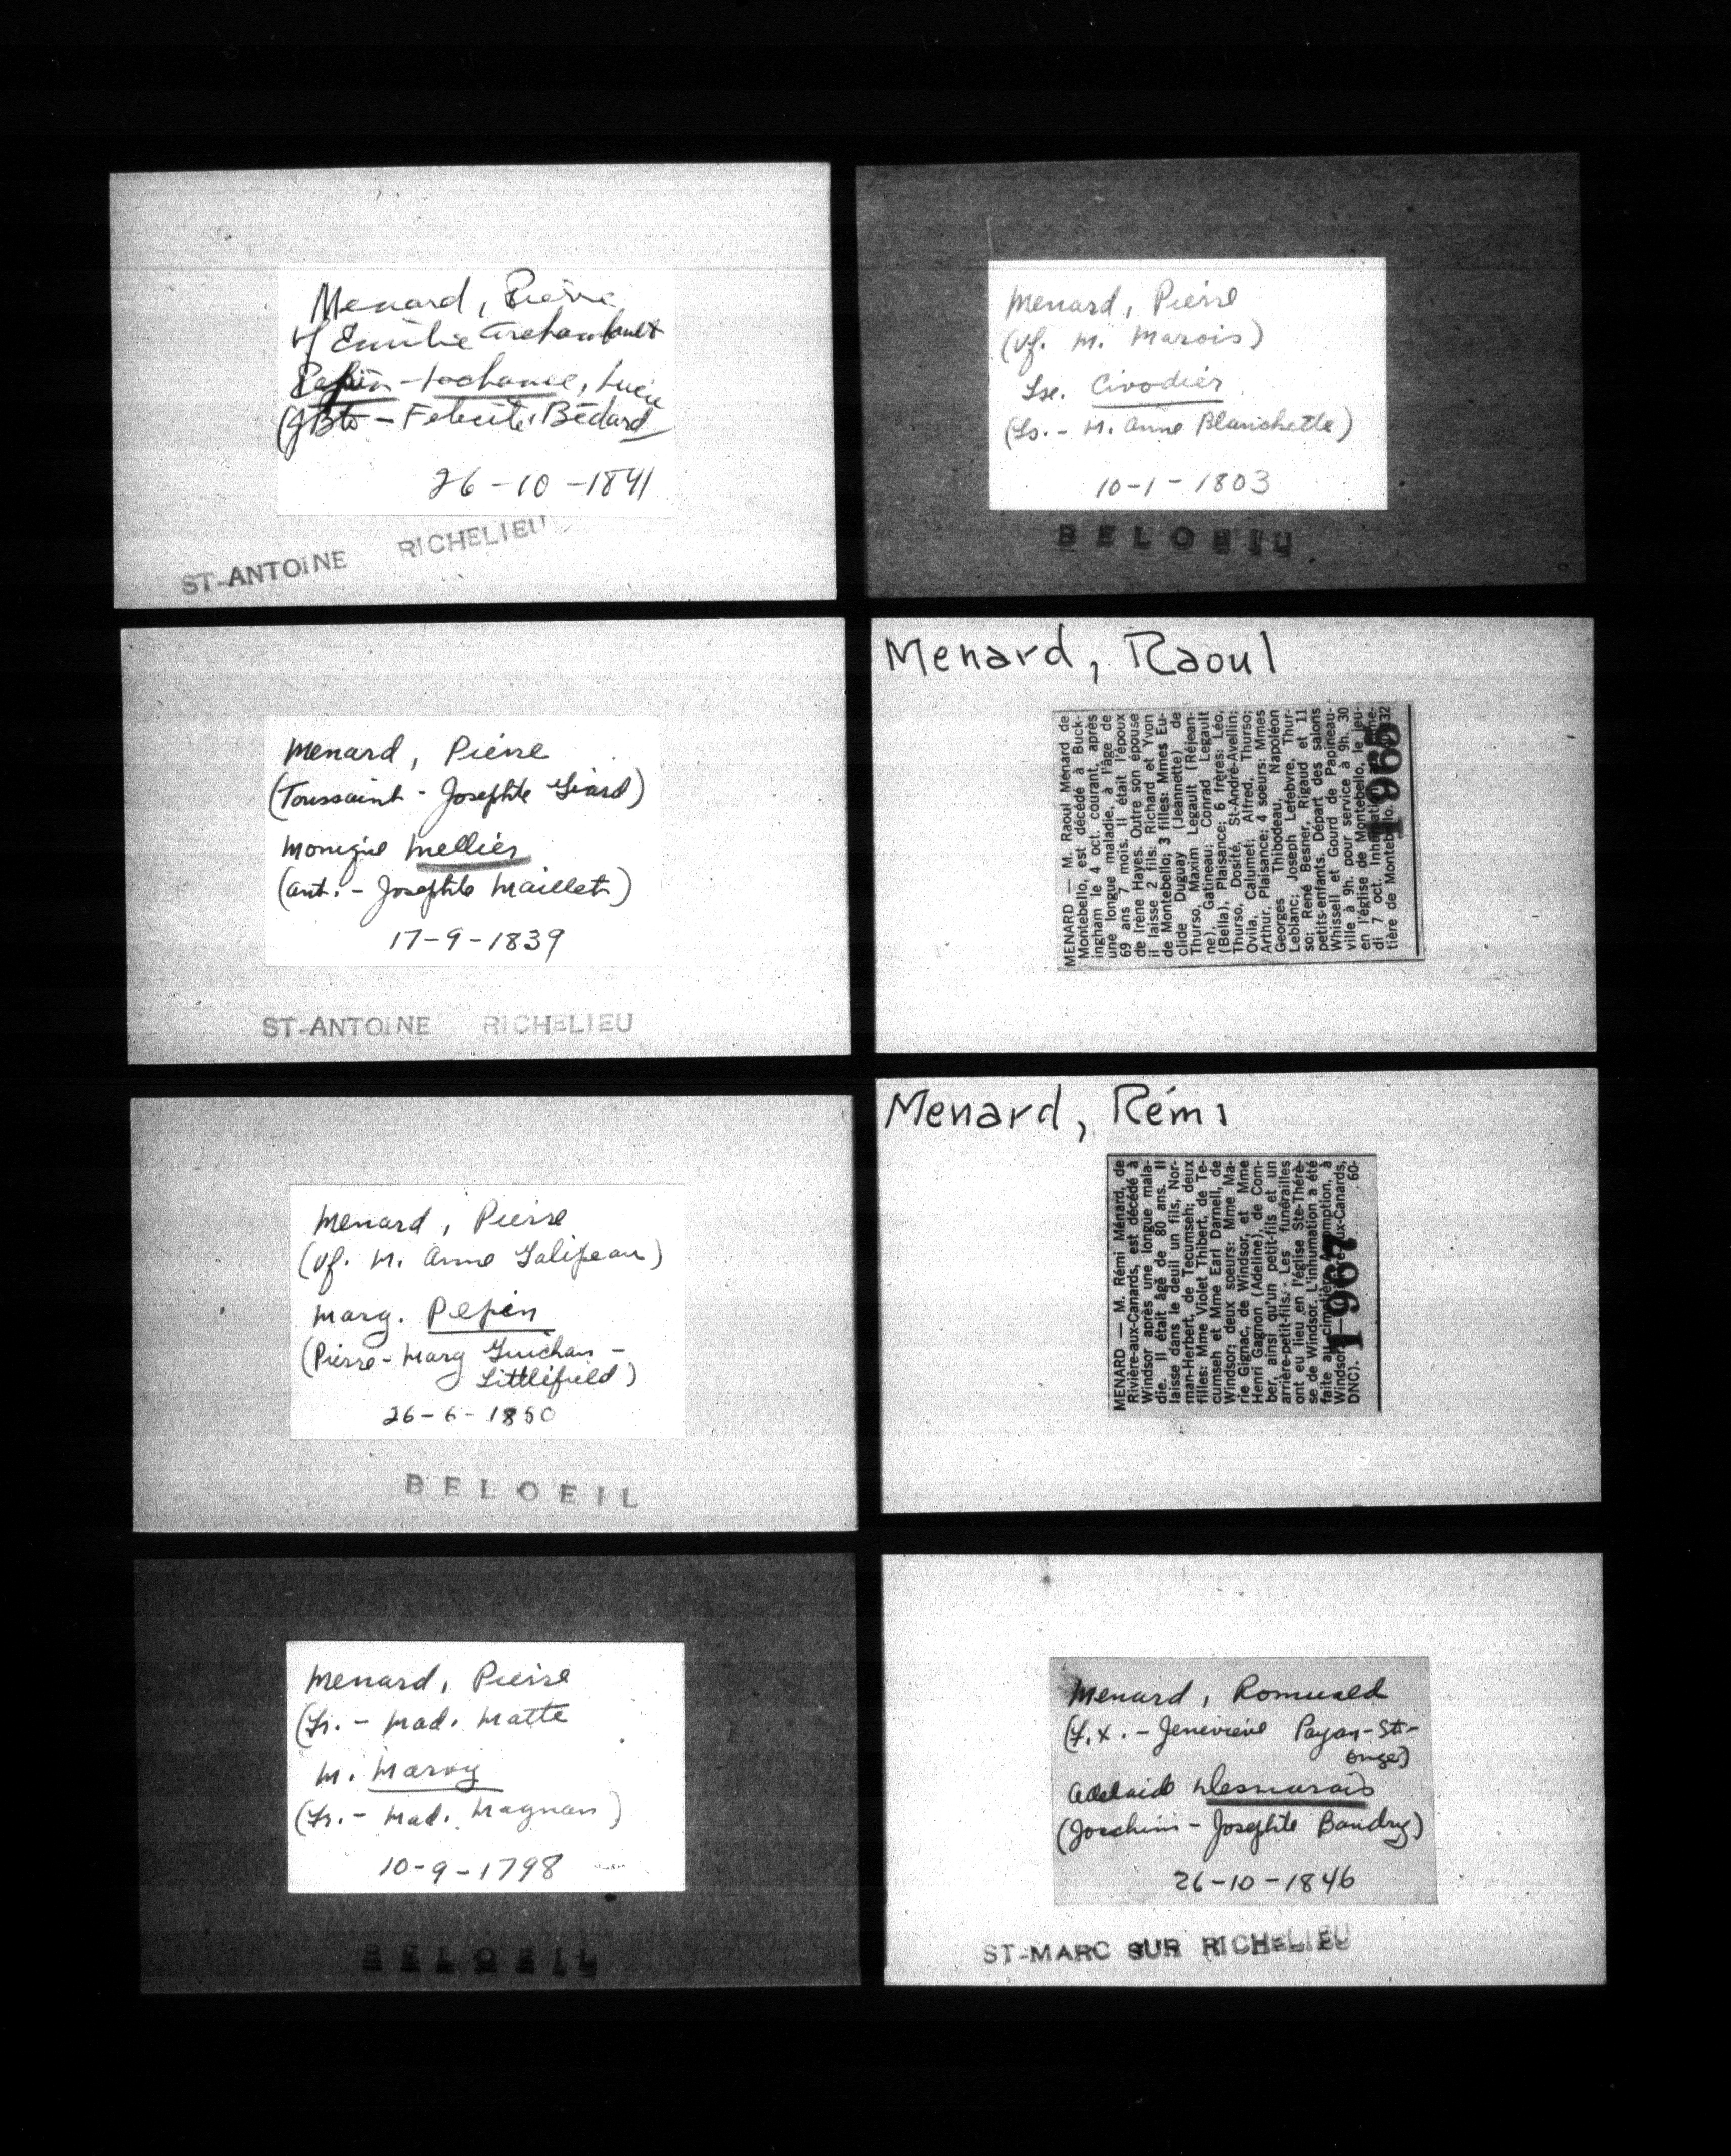 Menard, Pierre
vf Emilie Archambault
Pepin-Lachance, Lucie
(JBte - Felicité Bédard
26-10-1841
ST-ANTOINE RICHELIEU
Menard, Pierre
(Toussaint - Josephte Giard)
Monique Mellier
(Ant. - Josephte Maillet)
17-9-1839
ST-ANTOINE RICHELIEU
Menard, Pierre
(Vf. M. Anne Galipeau)
Marg. Pepin
(Pierre - Marg Guichan -
Littlefield)
26-6-1850
BELOEIL
Menard, Pierre
(Fr. - Mad. Matte
M. Marvy
(Fr. - Mad. Magnan)
10-9-1798
BELOEIL
Menard, Pierre
(Vf. M. Marois)
Lse. Civodier
(Ls. - M. Anne Blanchette)
10-1-1803
BELOEIL
Menard, Raoul
MENARD — M. Raoul Ménard de
Montebello, est décédé à Buck-
ingham le 4 oct. courant, après
une longue maladie, à l'âge de
69 ans 7 mois. Il était l'époux
de Irène Hayes. Outre son épouse
il laisse 2 fils: Richard et Yvon
de Montebello; 3 filles: Mmes Eu-
clide Duguay (Jeannette) de
Thurso, Maxim Legault (Réjean-
ne), Gatineau; Conrad Legault
(Bella), Plaisance; 6 frères: Léo,
Thurso, Dosité, St-André-Avellin;
Ovila, Calumet; Alfred, Thurso;
Arthur, Plaisance; 4 soeurs: Mmes
Georges Thibodeau, Napoléon
Leblanc; Joseph Lefebvre, Thur-
so; René Besner, Rigaud et 11
petits-enfants. Départ des salons
Whissell et Gourd de Papineau-
ville à 9h. pour service à 9h. 30
en l'église de Montebello, le jeu-
di 7 oct. Inhumation au cime-
tière de Montebello.
1965
Menard, Rémi
MENARD — M. Rémi Ménard, de
Rivière-aux-Canards, est décédé à
Windsor après une longue mala-
die. Il était âgé de 80 ans. Il
laisse dans le deuil un fils, Nor-
man-Herbert, de Tecumseh; deux
filles: Mme Violet Thibert, de Te-
cumseh et Mme Earl Darnell, de
Windsor; deux soeurs: Mme Ma-
rie Gignac, de Windsor, et Mme
Henri Gagnon (Adeline), de Com-
ber, ainsi qu'un petit-fils et un
arrière-petit-fils. Les funérailles
ont eu lieu en l'église Ste-Thérè-
se de Windsor. L'inhumation a été
faite au cimetière Assomption, à
Windsor
aux-Canards,
DNC). 60-
1967
Menard, Romuald
(F.X. - Geneviève Payan-St-
onge)
Adelaide Desmarais
(Joachim - Josephte Baudry)
26-10-1846
ST-MARC SUR RICHELIEU